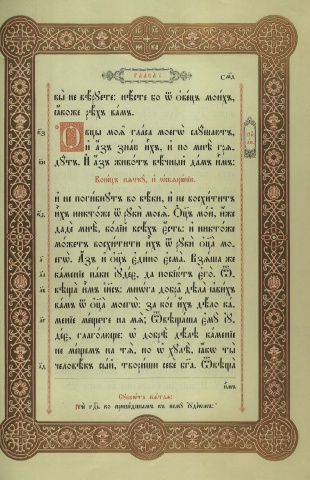 Ꙋ҆ІѠА́ННА
вы̀ не вѣ́рꙋете: нѣ́сте бо ѿ ѻ҆ве́цъ мои́хъ,
ꙗ҆́коже рѣ́хъ ва́мъ.
Ѻ҆́вцы моѧ̑ гла́са моегѡ̀ слꙋ́шаютъ,
и҆ а҆́зъ зна́ю и҆̀хъ, и҆ по мнѣ̀ грѧ-
дꙋ́тъ. И҆ а҆́зъ живо́тъ вѣ́чный да́мъ и҆̀мъ:
Коне́цъ пѧткꙋ̀, и҆ ѡ҆сщ҃е́нїю.
и҆ не поги́бнꙋтъ во вѣ́ки, и҆ не восхи́титъ
и҆́хъ никто́же ѿ рꙋкѝ моеѧ̀. Ѻ҆ц҃ъ мо́й, и҆́же
дадѐ мнѣ̀, бо́лїй всѣ́хъ є҆́сть: и҆ никто́же
мо́жетъ восхи́тити и҆̀хъ ѿ рꙋкѝ ѻ҆ц҃а̀ мо-
егѡ̀. А҆́зъ и҆ ѻ҆ц҃ъ є҆ди́но є҆сма̀. Взѧ́ша же
ка́менїе па́ки і҆ꙋде́є, да побїю́тъ є҆го̀. Ѿ-
вѣща̀ и҆̀мъ і҆и҃съ: мнѡ́га дѡбра̀ дѣла̀ ꙗ҆ви́хъ
ва́мъ ѿ ѻ҆ц҃а̀ моегѡ̀: за ко́е и҆́хъ дѣ́ло ка́-
менїе ме́щете на мѧ̀; Ѿвѣща́ша є҆мꙋ̀ і҆ꙋ-
де́є, глаго́люще: ѡ҆ до́брѣ дѣ́лѣ ка́менїе
не ме́щемъ на тѧ̀, но ѡ҆ хꙋлѣ̀, ꙗ҆́кѡ ты̀
человѣ́къ сы́й, твори́ши себѐ бг҃а. Ѿвѣща̀
и҆̀мъ
Сꙋббѡ́та п҃ѧтаѧ:
въ̀ гдⷭ҇ь ко прише́дшымъ къ немꙋ̀ і҆ꙋде́ѡмъ: